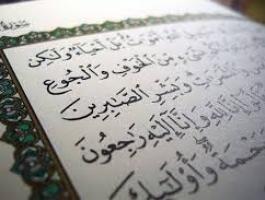 أَمْوَاتٌ بَلْ أَحْيَاءٌ وَلَٰكِن
مِّنَ الْخَوْفِ وَالْجُوعِ
وَالثَّمَرَٰتِ وَبَشِّرِ الصَّٰبِرِينَ
إِنَّا لِلَّهِ وَإِنَّا إِلَيْهِ رَٰجِعُونَ
وَرَحْمَةٌ وَأُو۟لَٰئِكَ